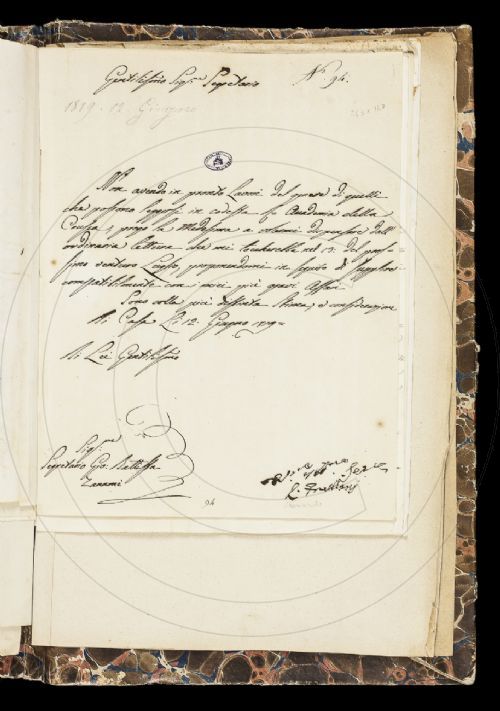 Gentilissimo Sig.re Segretario N.° 94.
1819. 12 Giugno
Non avendo in pronto Lavori del genere di quelli
che possono leggersi in codesta Accademia della
Crusca, prego la Medesima a volermi dispensare dall'
ordinaria Lettura che mi toccherebbe nel 13. del pros-
simo venturo Luglio, proponendomi in seguito di supplirvi
compatibilmente con miei più gravi Affari.
Sono colla più distinta Stima, e considerazione
Di Casa Li 12. Giugno 1819
Di Lei Gentilissimo
Sig.re
Segretario Gio. Batista
Zannoni
94